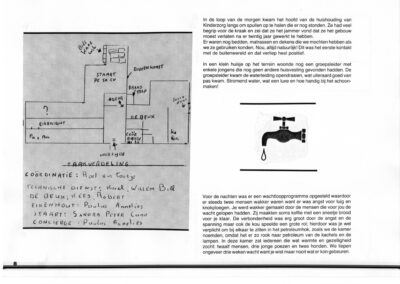 STAART
?
EIGENHOUT
AGENS
DE BRUX
TAAKVERDELING
COÖRDINATIE: Roel en
TECHNISCHE DIENST: Henk, Willem B.
DE BRUX, KEES ROBERT
EIGENHOUT: Paulus Annelies
STAART: SANDRA PETER
CONCIERGE: Paulus Annelies
In de loop van de morgen kwam het hoofd van de huishouding van
Kinderzorg langs om spullen op te halen die er nog stonden. Ze had veel
begrip voor de kraak en zei dat ze het jammer vond dat ze het gebouw
moest verlaten na er twintig jaar gewerkt te hebben.
Er waren nog bedden, matrassen en dekens die we mochten hebben als
we ze gebruiken konden. Nou, altijd natuurlijk! Dit was het eerste kontakt
met de buitenwereld en dat verliep heel positief.
In een klein huisje op het terrein woonde nog een groepsleider met
enkele jongens die nog geen andere huisvesting gevonden hadden. De
groepsleider kwam de waterleiding opendraaien, wat uiteraard goed van
pas kwam. Stromend water, wat een luxe en hoe handig bij het schoon-
maken!
Voor de nachten was er een wachtloopprogramma opgesteld waardoor
er steeds twee mensen wakker waren want er was angst voor tuig en
knokploegen. Je werd wakker gemaakt door de mensen die voor jou de
wacht gelopen hadden. Zij maakten soms koffie met een sneetje brood
voor je klaar. De verbondenheid was erg groot door de angst en de
spanning maar ook de kou speelde een grote rol: hierdoor was je wel
verplicht om bij elkaar te zitten in het petroleumhok, zoals we de kamer
noemden, omdat het er zo rook naar petroleum van de kachels en de
lampen. In deze kamer zat iedereen die wat warmte en gezelligheid
zocht: twaalf mensen, drie jonge poezen en twee honden. We liepen
ongeveer drie weken wacht want je wist maar nooit wat er kon gebeuren.